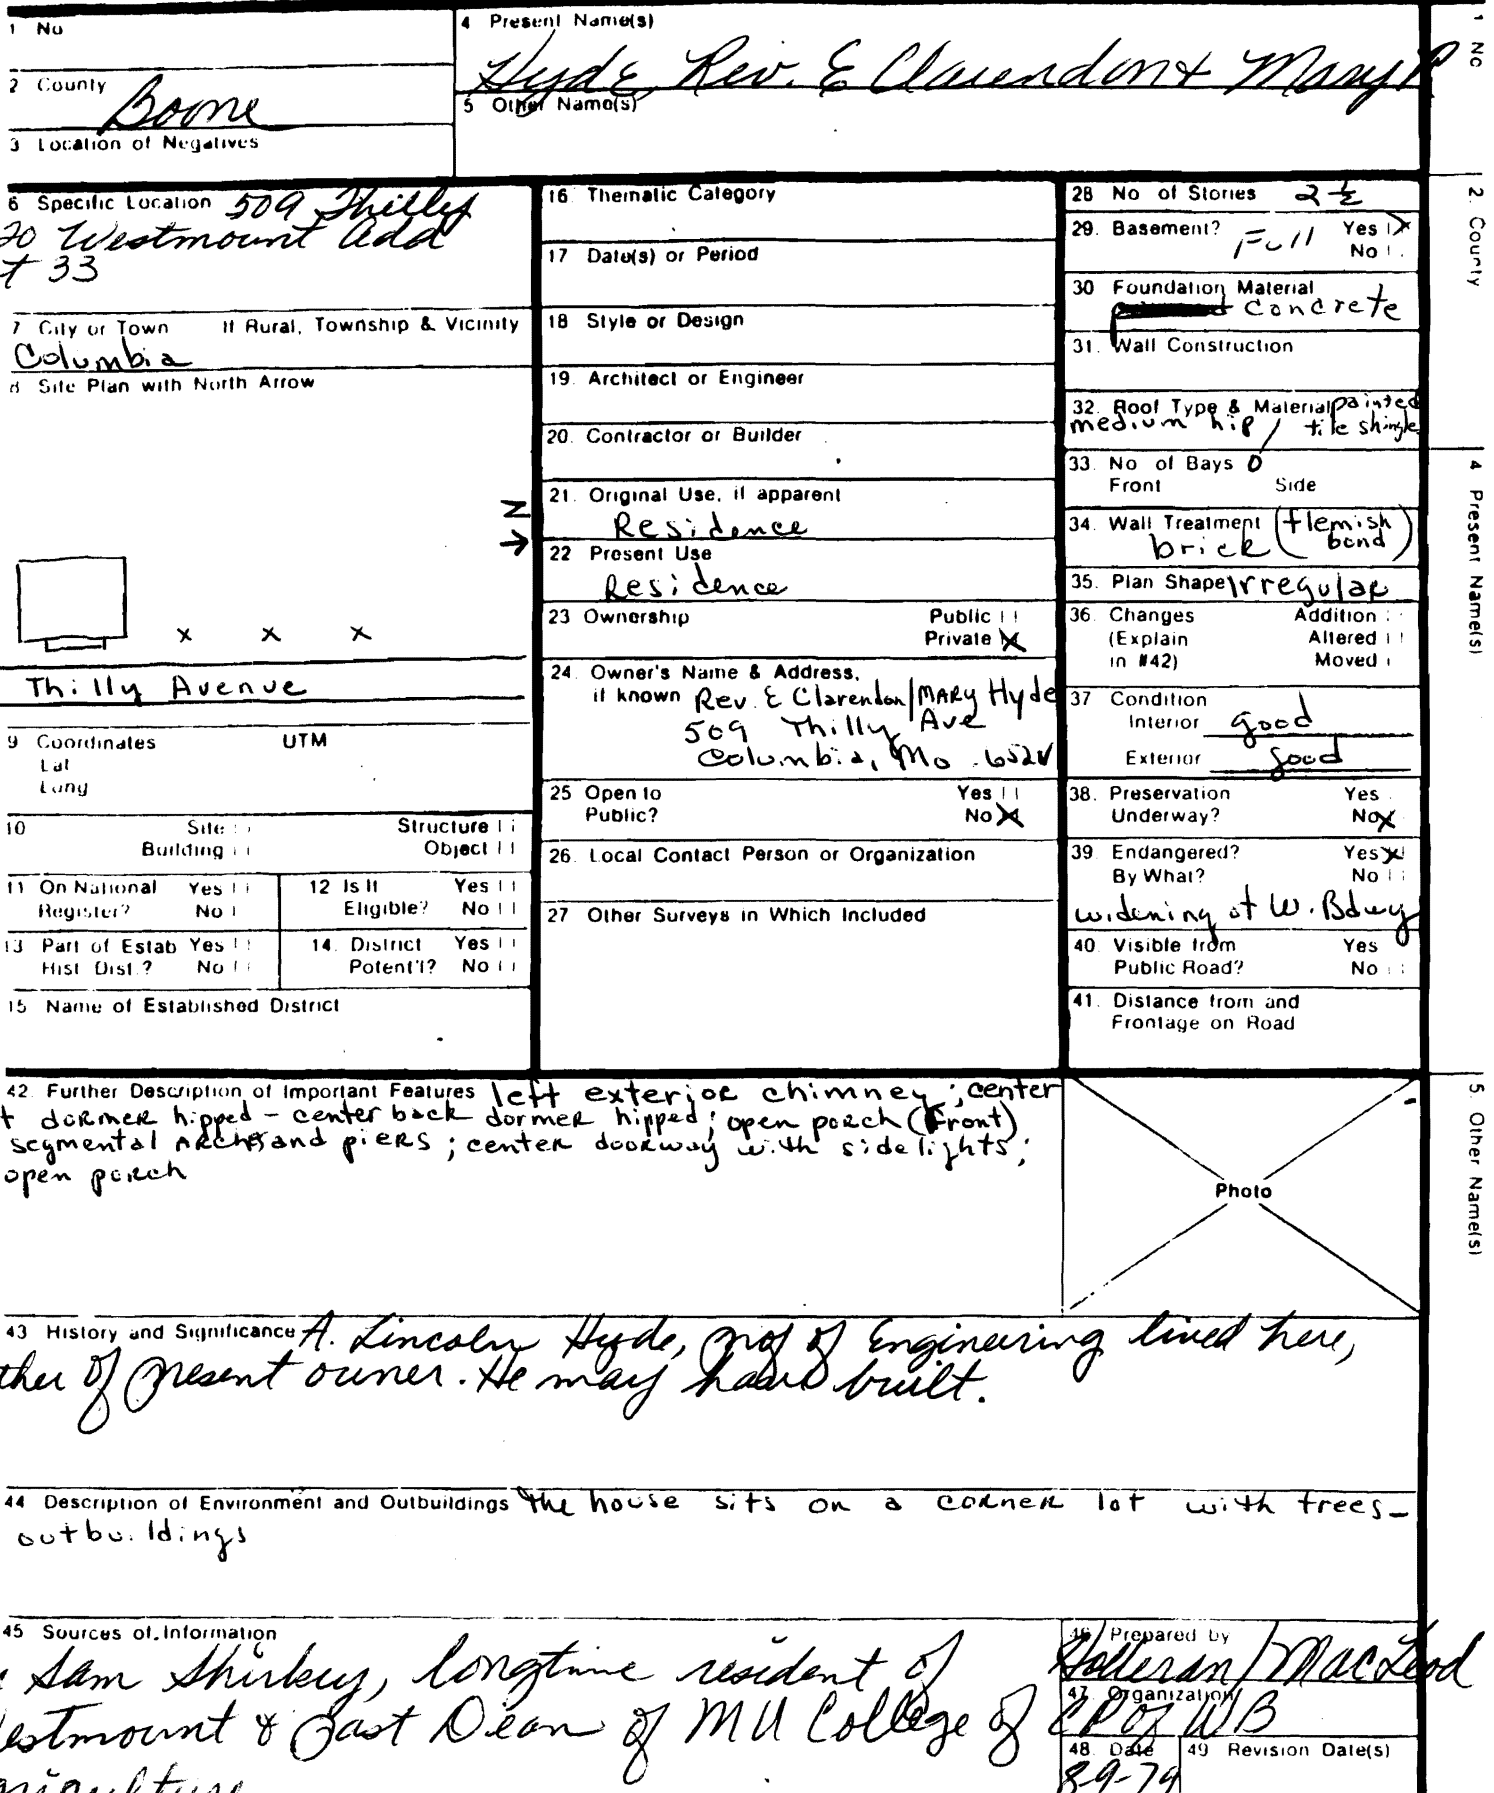 1 No
4 Present Name(s)
Hyde, Rev. E Clarendon & Mary
2 County
Boone
5 Other Name(s)
3 Location of Negatives
6 Specific Location 509 Thilly
Westmount Add
33
7 City or Town If Rural, Township & Vicinity
Columbia
8 Site Plan with North Arrow
N
Thilly Avenue
9 Coordinates UTM
Lat
Long
10 Site Structure
Building Object
11 On National Register? Yes No
12 Is It Eligible? Yes No
13 Part of Estab Hist Dist.? Yes No
14. District Potent'l? Yes No
15 Name of Established District
16. Thematic Category
17 Date(s) or Period
18 Style or Design
19. Architect or Engineer
20. Contractor or Builder
21. Original Use, if apparent
Residence
22 Present Use
Residence
23 Ownership Public
Private X
24. Owner's Name & Address,
if known Rev. E Clarendon/MARY Hyde
509 Thilly Ave
Columbia, Mo.
25 Open to Yes
Public? No X
26. Local Contact Person or Organization
27 Other Surveys in Which Included
28 No of Stories 2 ½
29. Basement? Full Yes X
No
30 Foundation Material
concrete
31. Wall Construction
32. Roof Type & Material painted
medium hip / tile shingle
33. No of Bays 0
Front Side
34. Wall Treatment (flemish
brick bond)
35. Plan Shape Irregular
36. Changes Addition
(Explain Altered
in #42) Moved
37 Condition
Interior good
Exterior good
38. Preservation Yes
Underway? No X
39. Endangered? Yes X
By What? No
widening of W. Bdwy
40. Visible from Yes
Public Road? No
41. Distance from and
Frontage on Road
42. Further Description of Important Features left exterior chimney; center
t dormer hipped - center back dormer hipped; open porch (front)
segmental arches and piers; center doorway with sidelights;
open porch
Photo
43 History and Significance A. Lincoln Hyde, prof of Engineering lived here,
ther of present owner. He may have built.
44 Description of Environment and Outbuildings The house sits on a corner lot with trees-
outbuildings
45 Sources of Information
Sam Shirkey, longtime resident of
estmount & past Dean of MU College of
griculture
46 Prepared by
Holleran/MacLeod
47. Organization
CP of WB
48. Date
8-9-79
49 Revision Date(s)
1 No
2. County
4 Present Name(s)
5. Other Name(s)